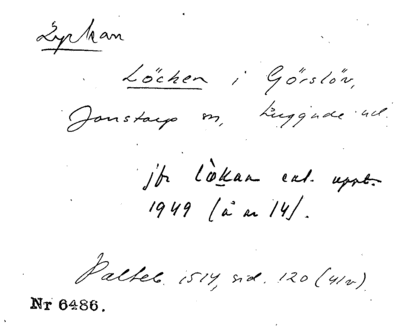 Lyckan
Löcken i Görslöv,
Jonstorp sn, Luggude hd.
jfr lökan enl. uppt.
1949 (å nr 14).
Palteb. 1514, sid. 120 (41v)
Nr 6486.